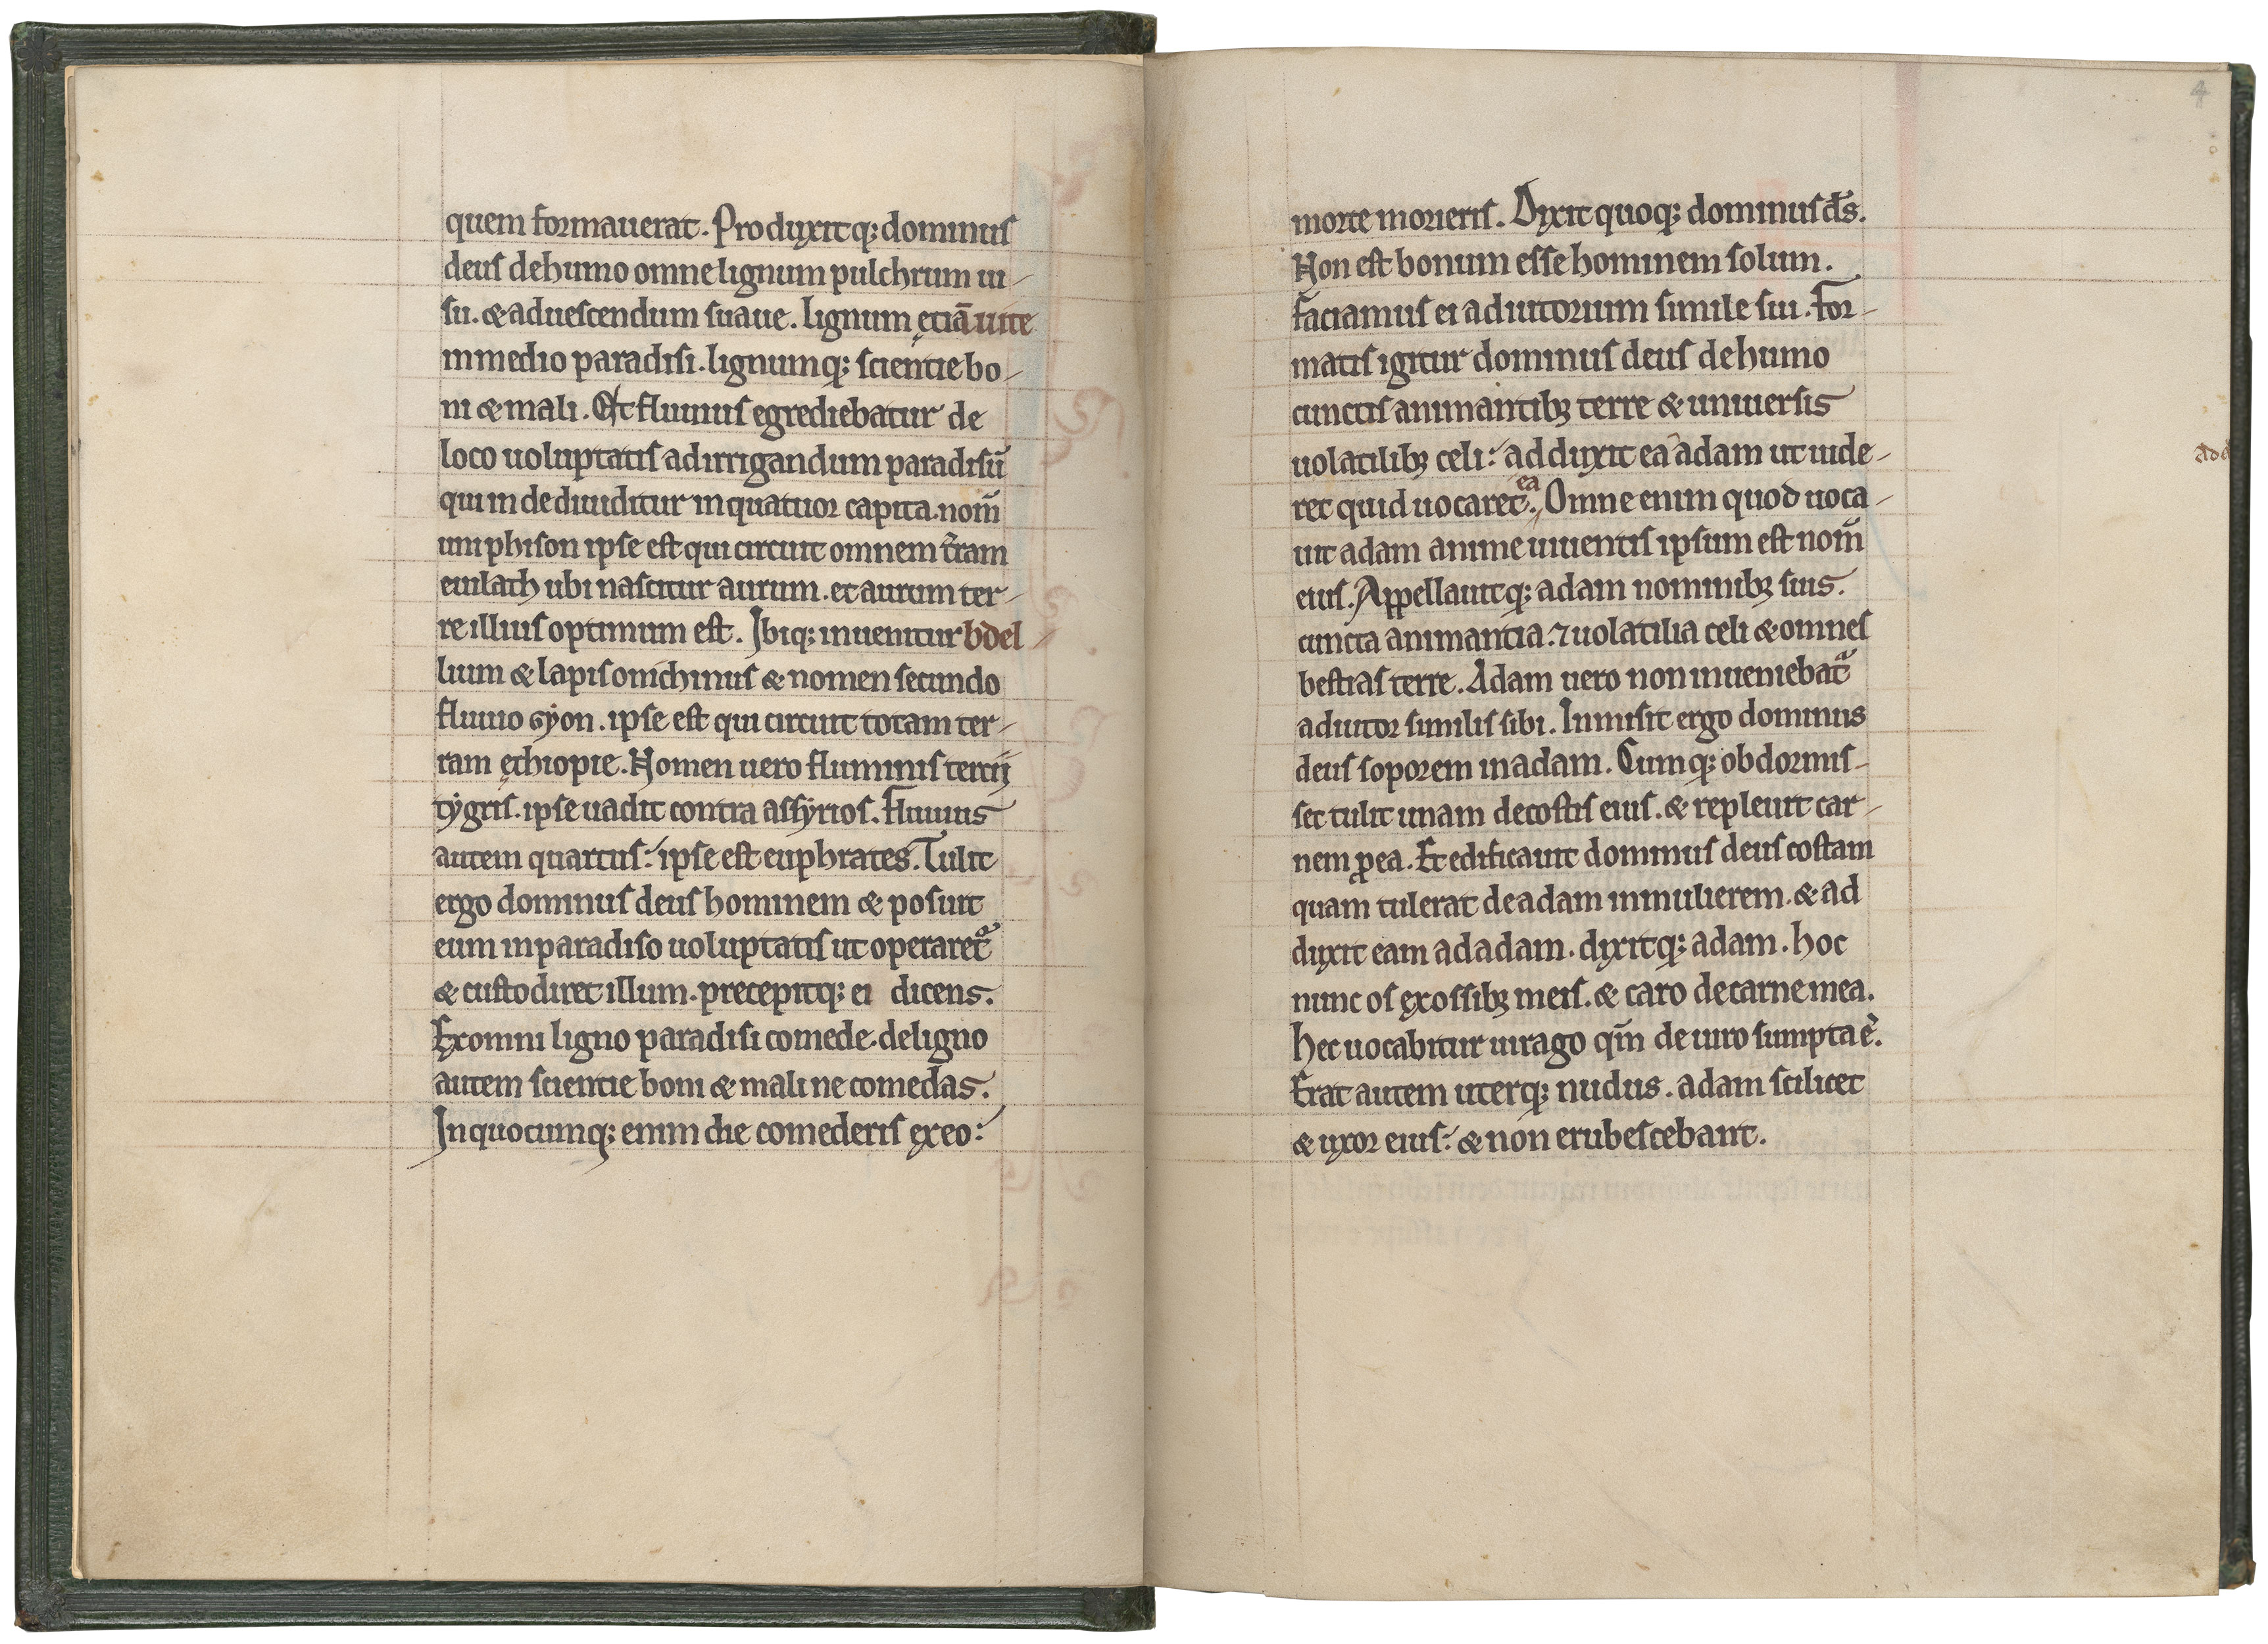 quem formauerat. Produxitq; dominus
deus dehumo omnelignum pulchrum ui-
su. & aduescendum suaue. lignum ęciā uite
inmedio paradisi. lignumq; scientie bo-
ni & mali. Et fluuius egrediebatur de
loco uoluptatis adirrigandum paradisū
qui inde diuiditur inquatuor capita. nom̄
uni phison ipse est qui circuit omnem t̄ram
euilath ubi nascitur aurum. et aurum ter-
re illius optimum est. Ibiq; inuenitur bdel-
lium & lapis onichinus & nomen secundo
fluuio gyon. ipse est qui circuit totam ter-
ram ęthiopie. Nomen uero fluminis tercij
tygris. ipse uadit contra assyrios. Fluuius
autem quartus: ipse est euphrates. Tulit
ergo dominus deus hominem & posuit
eum inparadiso uoluptatis ut operaret᷑
& custodiret illum. precepitq; ei dicens.
Exomni ligno paradisi comede. deligno
autem scientie boni & mali ne comedas.
Inquocumq; enim die comederis exeo:
4
morte morieris. Dixit quoq; dominus ds̄.
Non est bonum esse hominem solum.
faciamus ei adiutorium simile sui. For-
matis igitur dominus deus dehumo
cunctis animantibꝫ terre & uniuersis
uolatilibꝫ celi: adduxit ea adam ut uide-
ret quid uocaret ea. Omne enim quod uoca-
uit adam anime uiuentis ipsum est nom̄
eius. Appellauitq; adam nominibꝫ suis.
cuncta animantia: ⁊ uolatilia celi & omnes
bestias terre. Adam uero non inueniebat᷑
adiutor similis sibi. Inmisit ergo dominus
deus soporem inadam. Cumq; obdormis-
set tulit unam decostis eius. & repleuit car-
nem ꝓ ea. Et edificauit dominus deus costam
quam tulerat deadam inmulierem. & ad
duxit eam adadam. dixitq; adam. hoc
nunc os exossibꝫ meis. & caro decarne mea.
hec uocabitur uirago qm̄ de uiro sumpta ē.
Erat autem uterq; nudus. adam scilicet
& uxor eius: & non erubescebant.